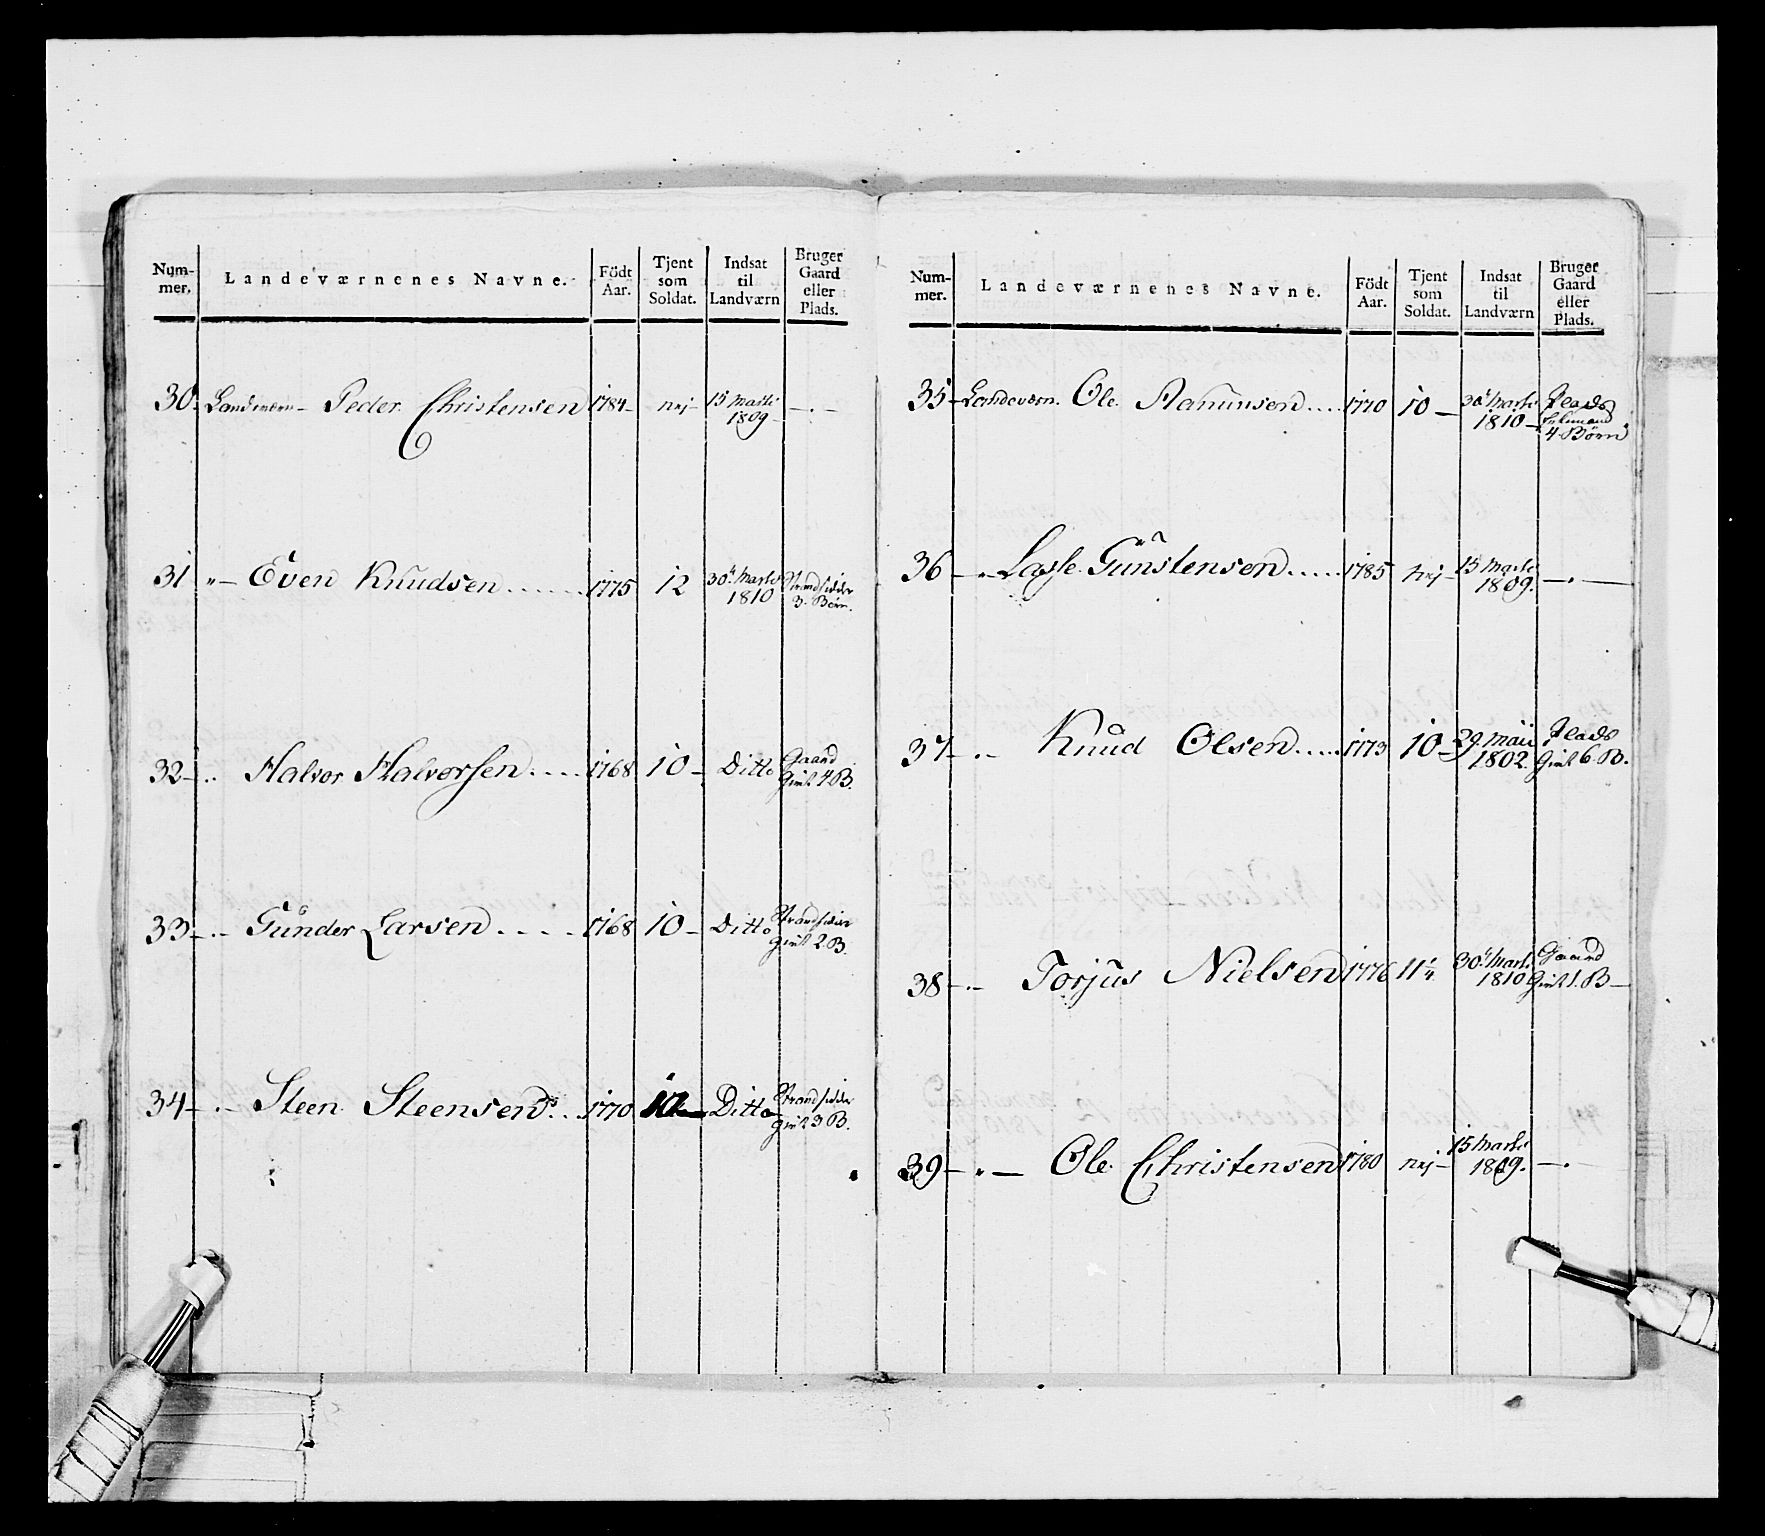 Num-
mer.
Landeværnenes Navne.
Födt
Aar.
Tjent
som
Soldat.
Indsat
til
Landværn
Bruger
Gaard
eller
Plads.
30. Landeværn – Peder Christensen 1784 – nej – 15 Martii
1809 – – . –
31 " – Even Knudsen ...... 1775 12 30' Martii
1810 Strandsidder
3. Børn.
32 – .. Halvor Halvorsen .... 1768 10 – Ditto Gaard
Givt 4 B.
33 – .. – Gunder Larsen .... 1768 10 – Ditto Strandsidder
givt 2. B.
34 – . – Steen Steensen .. 1770 Ditto Strandsidder
givt 3 B.
Num-
mer.
Landeværnenes Navne.
Födt
Aar.
Tjent
som
Soldat.
Indsat
til
Landværn
Bruger
Gaard
eller
Plads.
35 – Landeværn. Ole Aamunsen .... 1770 10 – 30' Martii
1810 – Plads
4. Børn
36 – " Lasse Gunstensen ..... 1785 nej – 15 Martii
1809. – . –
37 – . – Knud Olsen ..... 1773 10 – 29. Maii
1802. Plads
Givt 6. B.
38 – . – Torjus Nielsen 1776 11 1/4 30' Martii
1810 Gaard
Givt 1. B –
39 – " – Ole Christensen 1780 nej – 15 Martii
1809. – . –